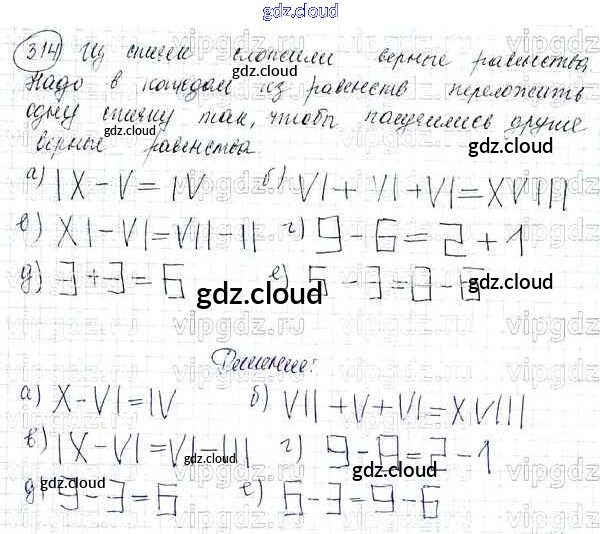 gdz.cloud
314) Из спичек сложили верные равенства.
Надо в каждом из равенств переложить
одну спичку так, чтобы получились другие
верные равенства.
а) IX-V=IV б) VI+VI+VI=XVIII
в) XI-VI=VII-II г) 9-6=2+1
д) 3+3=6 е) 5-3=8-6
gdz.cloud
Решение:
а) X-VI=IV б) VII+V+VI=XVIII
в) IX-VI=VI-III г) 9-8=2-1
д) 9-3=6 е) 6-3=9-6
gdz.cloud